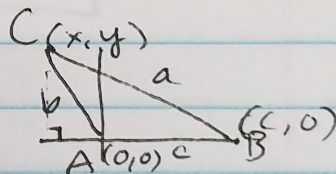 C (x, y)
a
b
(c, 0)
A (0,0) c B